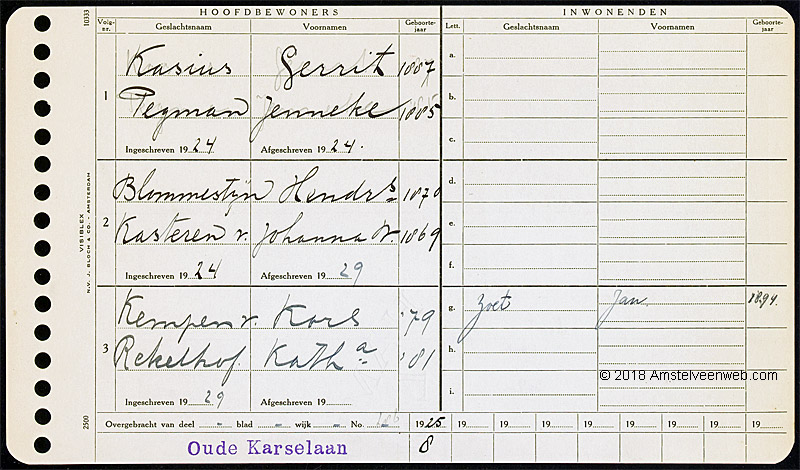 HOOFDBEWONERS INWONENDEN
Volg-nr. Geslachtsnaam Voornamen Geboorte-jaar Lett. Geslachtsnaam Voornamen Geboorte-jaar
10333
1
Kasius Gerrit 1887 a.
Pegman Jenneke 1885 b.
c.
Ingeschreven 1924 Afgeschreven 1924.
2
Blommestijn Hendrs 1870 d.
Kasteren v. Johanna W. 1869 e.
f.
Ingeschreven 1924 Afgeschreven 1929
3
Kempen v. Kors '79 g. Zoet Jan 1894
Rekelhof Katha '81 h.
i.
Ingeschreven 1929 Afgeschreven 19
VISIBLEX
N.V. J. BLOCH & CO. - AMSTERDAM
2500
© 2018 Amstelveenweb.com
Overgebracht van deel - blad - wijk - No. 186 1925 19 19 19 19 19 19 19 19
Oude Karselaan 8